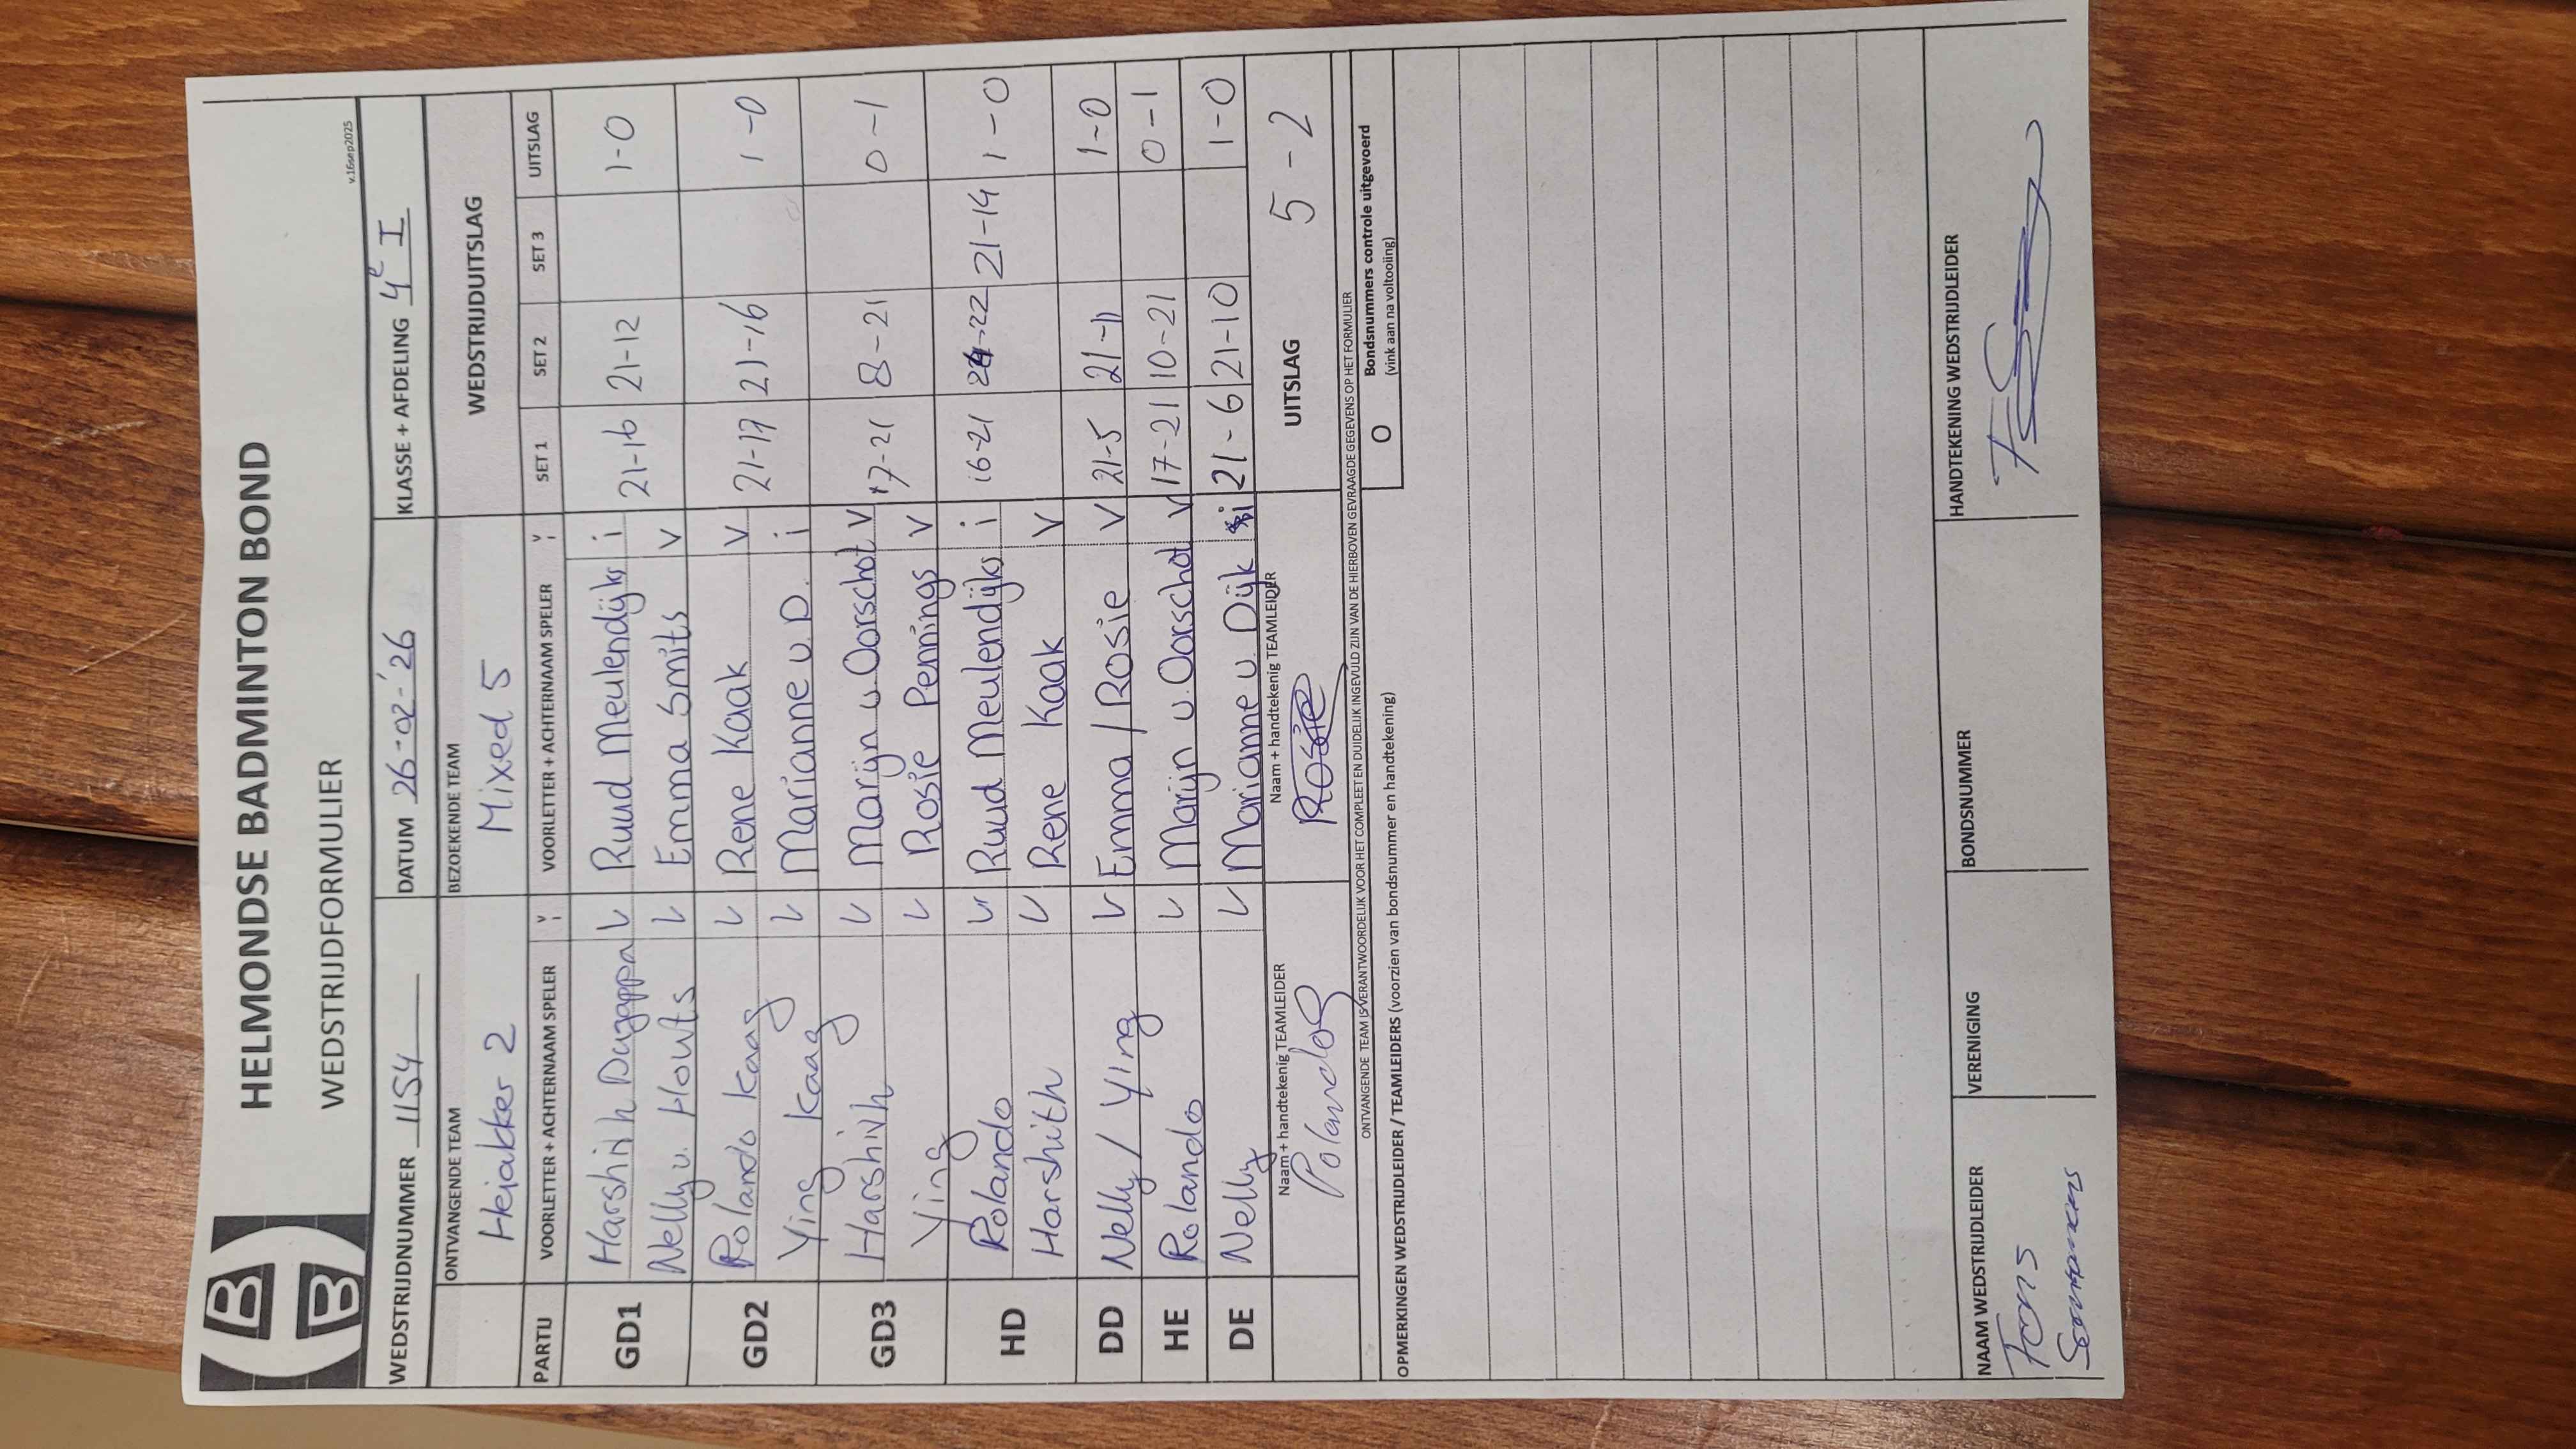 HELMONDSE BADMINTON BOND
WEDSTRIJDFORMULIER
v.16sep2025
WEDSTRIJDNUMMER 1154 DATUM 26-02-'26 KLASSE + AFDELING 4e I
ONTVANGENDE TEAM BEZOEKENDE TEAM WEDSTRIJDUITSLAG
Heiakker 2 Mixed 5
PARTIJ VOORLETTER + ACHTERNAAM SPELER V I VOORLETTER + ACHTERNAAM SPELER V I SET 1 SET 2 SET 3 UITSLAG
GD1 Harshith V Ruud Meulendijks i 21-16 21-12 1-0
Nelly v. Houts V Emma Smits V
GD2 Rolando Kaag V Rene Kaak V 21-17 21-16 1-0
Ying Kaag V Marianne v. D. i
GD3 Harshith V Marijn v. Oorschot V 17-21 8-21 0-1
Ying V Rosie Pennings V
HD Rolando V Ruud Meulendijks i 16-21 24-22 21-14 1-0
Harshith V Rene Kaak V
DD Nelly / Ying V Emma / Rosie V 21-5 21-11 1-0
HE Rolando V Marijn v. Oorschot V 17-21 10-21 0-1
DE Nelly V Marianne v. Dijk i 21-6 21-10 1-0
Naam + handtekenig TEAMLEIDER Naam + handtekenig TEAMLEIDER UITSLAG 5-2
Rolando Rosie
ONTVANGENDE TEAM IS VERANTWOORDELIJK VOOR HET COMPLEET EN DUIDELIJK INGEVULD ZIJN VAN DE HIERBOVEN GEVRAAGDE GEGEVENS OP HET FORMULIER
O Bondsnummers controle uitgevoerd
(vink aan na voltooling)
OPMERKINGEN WEDSTRIJDLEIDER / TEAMLEIDERS (voorzien van bondsnummer en handtekening)
NAAM WEDSTRIJDLEIDER VERENIGING BONDSNUMMER HANDTEKENING WEDSTRIJDLEIDER
Fons